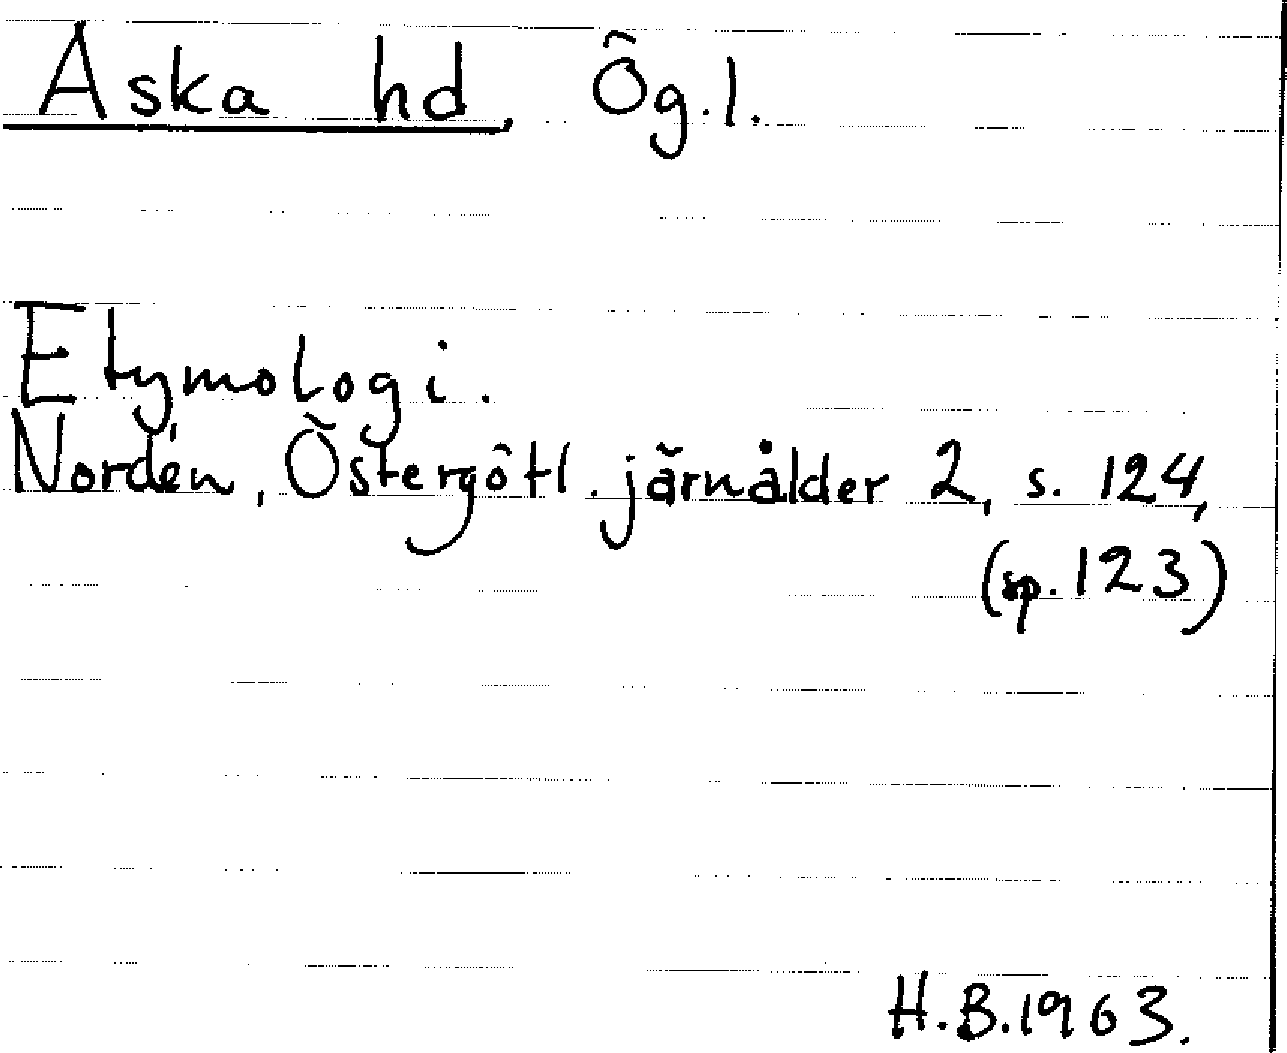 Aska hd, Ög.l.
Etymologi.
Nordén, Östergötl. järnålder 2, s. 124,
(sp. 123)
H.B. 1963.